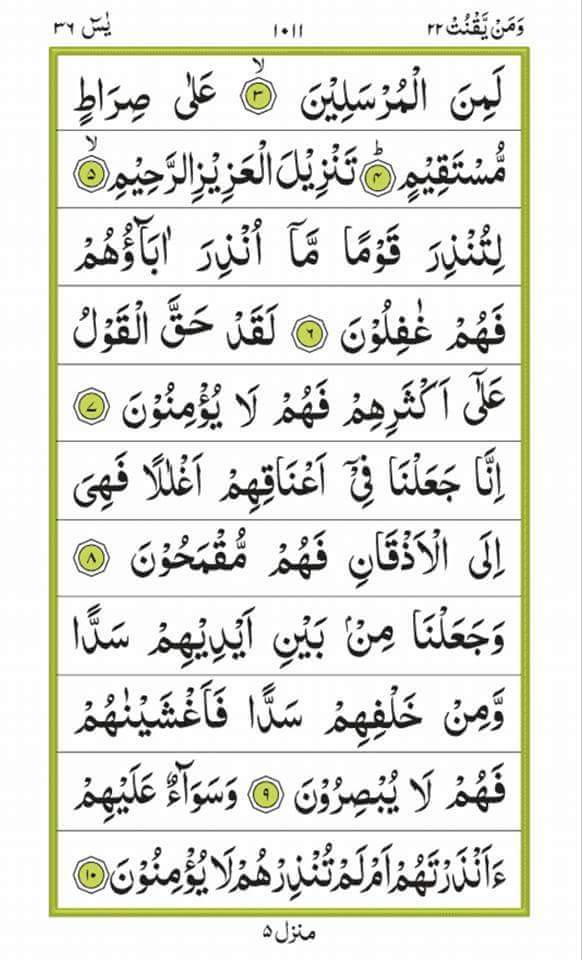 وَمَنْ يَّقْنُتْ ٢٢ ١٠١١ يٰسٓ ٣٦
لَمِنَ الْمُرْسَلِيْنَ ۙ﴿٣﴾ عَلٰى صِرَاطٍ
مُّسْتَقِيْمٍ ؕ﴿٤﴾ تَنْزِيْلَ الْعَزِيْزِ الرَّحِيْمِ ۙ﴿٥﴾
لِتُنْذِرَ قَوْمًا مَّاۤ اُنْذِرَ اٰبَآؤُهُمْ
فَهُمْ غٰفِلُوْنَ ﴿٦﴾ لَقَدْ حَقَّ الْقَوْلُ
عَلٰۤى اَكْثَرِهِمْ فَهُمْ لَا يُؤْمِنُوْنَ ﴿٧﴾
اِنَّا جَعَلْنَا فِيْۤ اَعْنَاقِهِمْ اَغْلٰلًا فَهِيَ
اِلَى الْاَذْقَانِ فَهُمْ مُّقْمَحُوْنَ ﴿٨﴾
وَجَعَلْنَا مِنْۢ بَيْنِ اَيْدِيْهِمْ سَدًّا
وَّمِنْ خَلْفِهِمْ سَدًّا فَاَغْشَيْنٰهُمْ
فَهُمْ لَا يُبْصِرُوْنَ ﴿٩﴾ وَسَوَآءٌ عَلَيْهِمْ
ءَاَنْذَرْتَهُمْ اَمْ لَمْ تُنْذِرْهُمْ لَا يُؤْمِنُوْنَ ﴿١٠﴾
منزل ۵